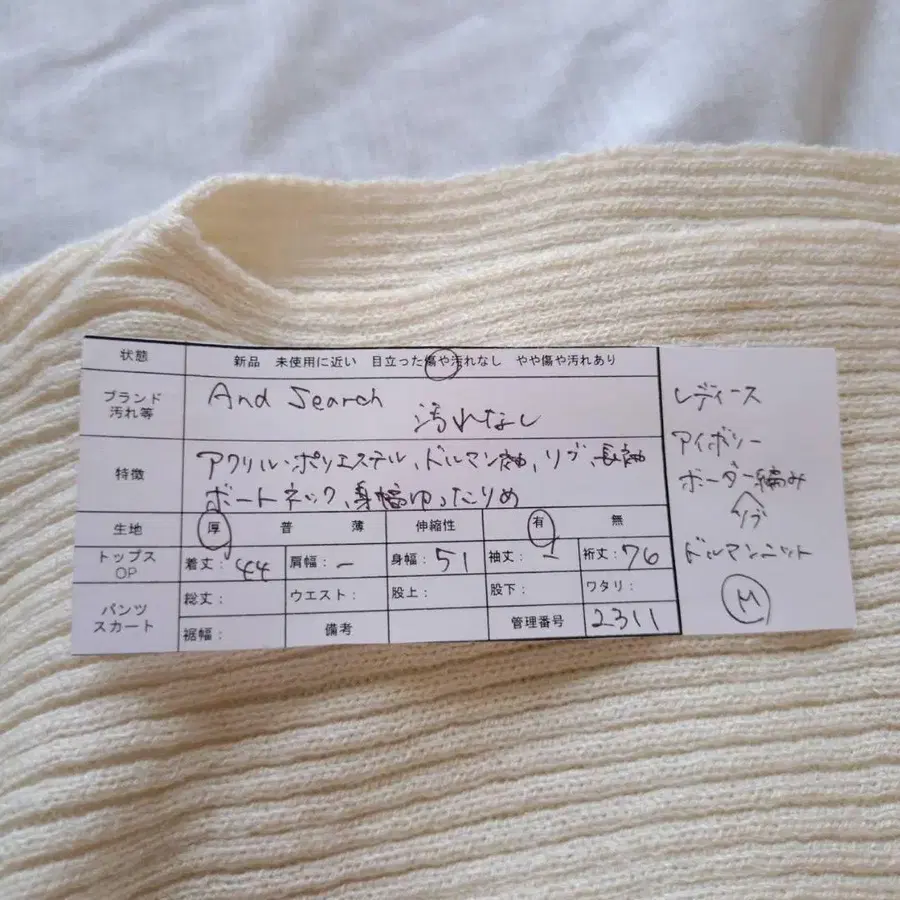 状態 新品 未使用に近い 目立った傷や汚れなし やや傷や汚れあり
ブランド
汚れ等
And Search
汚れなし
特徴
アクリル・ポリエステル、ドルマン袖、リブ、長袖
ボートネック、身幅ゆったりめ
生地 厚 普 薄 伸縮性 有 無
トップス
OP
着丈: 44 肩幅: ー 身幅: 51 袖丈: ー 裄丈: 76
パンツ
スカート
総丈: ウエスト: 股上: 股下: ワタリ:
裾幅: 備考 管理番号 2311
レディース
アイボリー
ボーダー編み
リブ
ドルマンニット
M